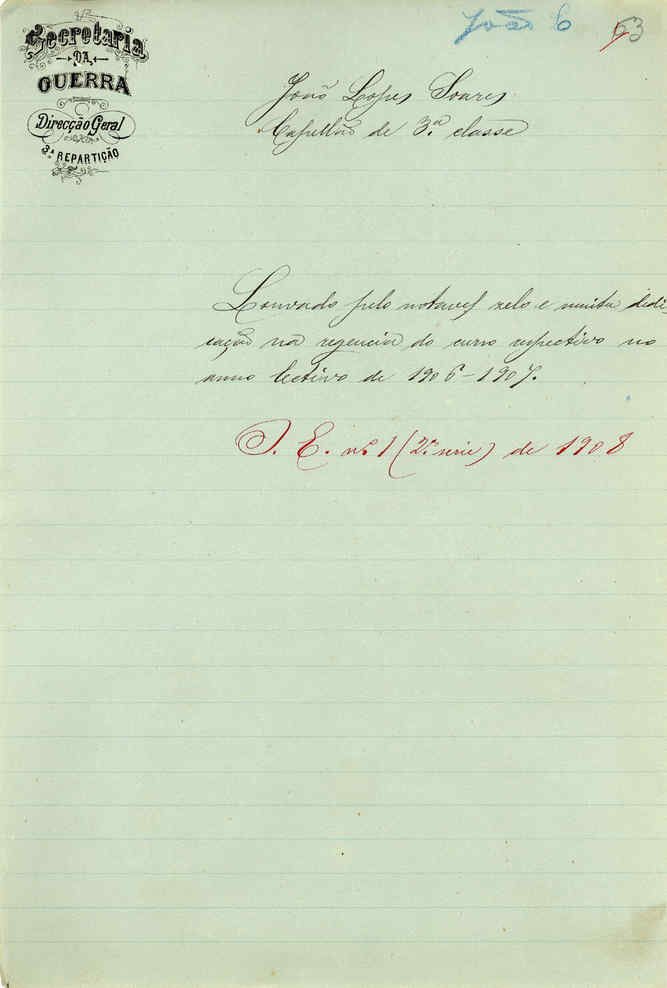 João 6
63
Secretaria
DA
GUERRA
Direcção Geral
3.ª REPARTIÇÃO
João Lopes Soares
Capellão de 3.ª classe
Louvado pelo notavel zelo e muita dedi-
cação na regencia do curso respectivo no
anno lectivo de 1906-1907.
O. E. nº 1 (2ª serie) de 1908